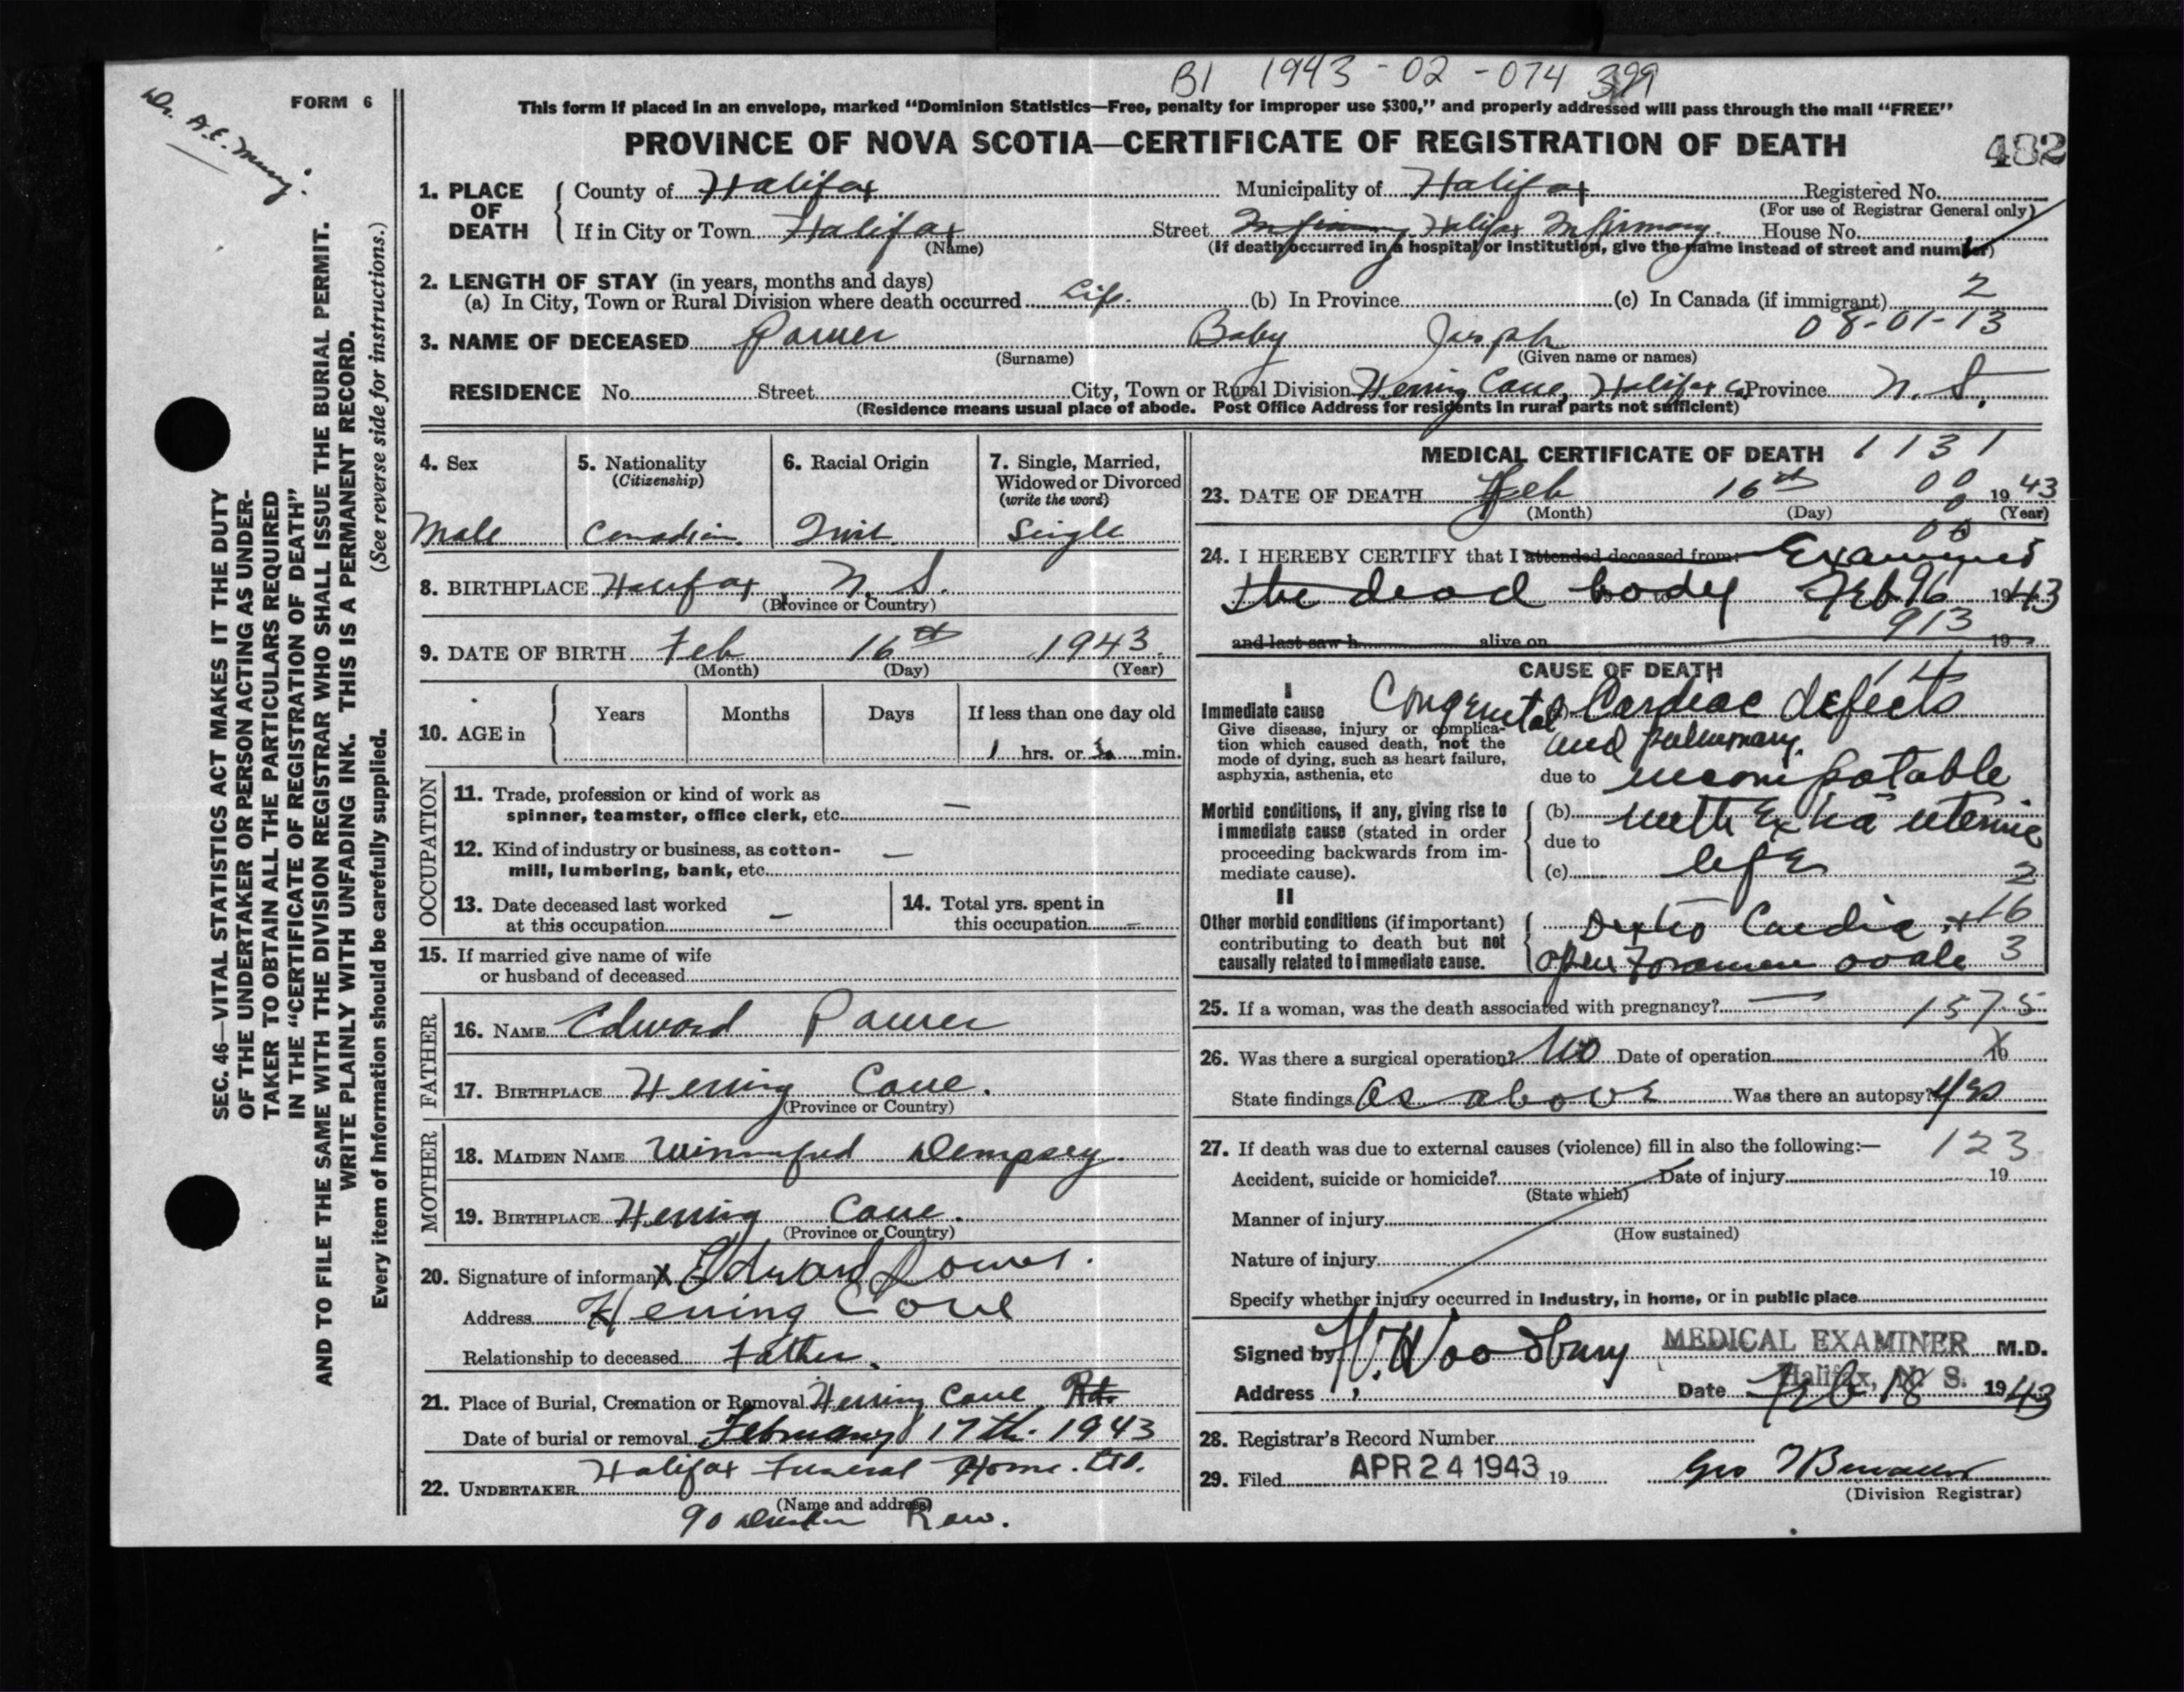 B1 1943-02-074 399
Dr. A.E. Murray.
FORM 6
This form if placed in an envelope, marked “Dominion Statistics—Free, penalty for improper use $300,” and properly addressed will pass through the mail “FREE”
PROVINCE OF NOVA SCOTIA—CERTIFICATE OF REGISTRATION OF DEATH
482
1. PLACE OF DEATH County of Halifax Municipality of Halifax Registered No.
(For use of Registrar General only)
If in City or Town Halifax Street Infirmary Halifax Infirmary. House No.
(Name) (If death occurred in a hospital or institution, give the name instead of street and number)
2. LENGTH OF STAY (in years, months and days)
(a) In City, Town or Rural Division where death occurred Life. (b) In Province (c) In Canada (if immigrant) 2
08-01-13
3. NAME OF DECEASED Power Baby Joseph
(Surname) (Given name or names)
RESIDENCE No. Street City, Town or Rural Division Herring Cove, Halifax Co Province N. S.
(Residence means usual place of abode. Post Office Address for residents in rural parts not sufficient)
SEC. 46—VITAL STATISTICS ACT MAKES IT THE DUTY
OF THE UNDERTAKER OR PERSON ACTING AS UNDER-
TAKER TO OBTAIN ALL THE PARTICULARS REQUIRED
IN THE “CERTIFICATE OF REGISTRATION OF DEATH”
AND TO FILE THE SAME WITH THE DIVISION REGISTRAR WHO SHALL ISSUE THE BURIAL PERMIT.
WRITE PLAINLY WITH UNFADING INK. THIS IS A PERMANENT RECORD.
Every item of information should be carefully supplied. (See reverse side for instructions.)
4. Sex 5. Nationality 6. Racial Origin 7. Single, Married,
(Citizenship) Widowed or Divorced
(write the word)
Male Canadian Irish Single
8. BIRTHPLACE Halifax N. S.
(Province or Country)
9. DATE OF BIRTH Feb 16th 1943
(Month) (Day) (Year)
Years Months Days If less than one day old
10. AGE in 1 hrs. or 30 min.
OCCUPATION
11. Trade, profession or kind of work as
spinner, teamster, office clerk, etc. —
12. Kind of industry or business, as cotton-
mill, lumbering, bank, etc. —
13. Date deceased last worked 14. Total yrs. spent in
at this occupation — this occupation —
15. If married give name of wife
or husband of deceased
FATHER
16. NAME Edward Power
17. BIRTHPLACE Herring Cove.
(Province or Country)
MOTHER
18. MAIDEN NAME Winnifred Dempsey.
19. BIRTHPLACE Herring Cove.
(Province or Country)
20. Signature of informant X Edward Power.
Address Herring Cove
Relationship to deceased Father.
21. Place of Burial, Cremation or Removal Herring Cove Rd.
Date of burial or removal February 17th. 1943
22. UNDERTAKER Halifax Funeral Home. Ltd.
(Name and address)
90 Row.
MEDICAL CERTIFICATE OF DEATH 1131
23. DATE OF DEATH Feb 16th 00 1943
(Month) (Day) (Year)
24. I HEREBY CERTIFY that I attended deceased from: Examined
the dead body to Feb 16 1943
and last saw h alive on 913 19
CAUSE OF DEATH
14
I
Immediate cause Congenital Cardiac defects
Give disease, injury or complica-
tion which caused death, not the and pulmonary.
mode of dying, such as heart failure,
asphyxia, asthenia, etc due to incompatable
Morbid conditions, if any, giving rise to (b) with Extra uterine
immediate cause (stated in order
proceeding backwards from im- due to
mediate cause). (c) life 2
II
Other morbid conditions (if important) Dextro Cardia + 16
contributing to death but not
causally related to immediate cause. open Foramen ovale 3
25. If a woman, was the death associated with pregnancy? — 1575
26. Was there a surgical operation? No Date of operation 19 X
State findings As above Was there an autopsy? Yes
27. If death was due to external causes (violence) fill in also the following:— 123
Accident, suicide or homicide? Date of injury 19
(State which)
Manner of injury
(How sustained)
Nature of injury
Specify whether injury occurred in industry, in home, or in public place
Signed by H. Woodbury MEDICAL EXAMINER M.D.
Address Halifax, N. S. Date Feb 18 1943
28. Registrar's Record Number
29. Filed APR 24 1943 19
(Division Registrar)